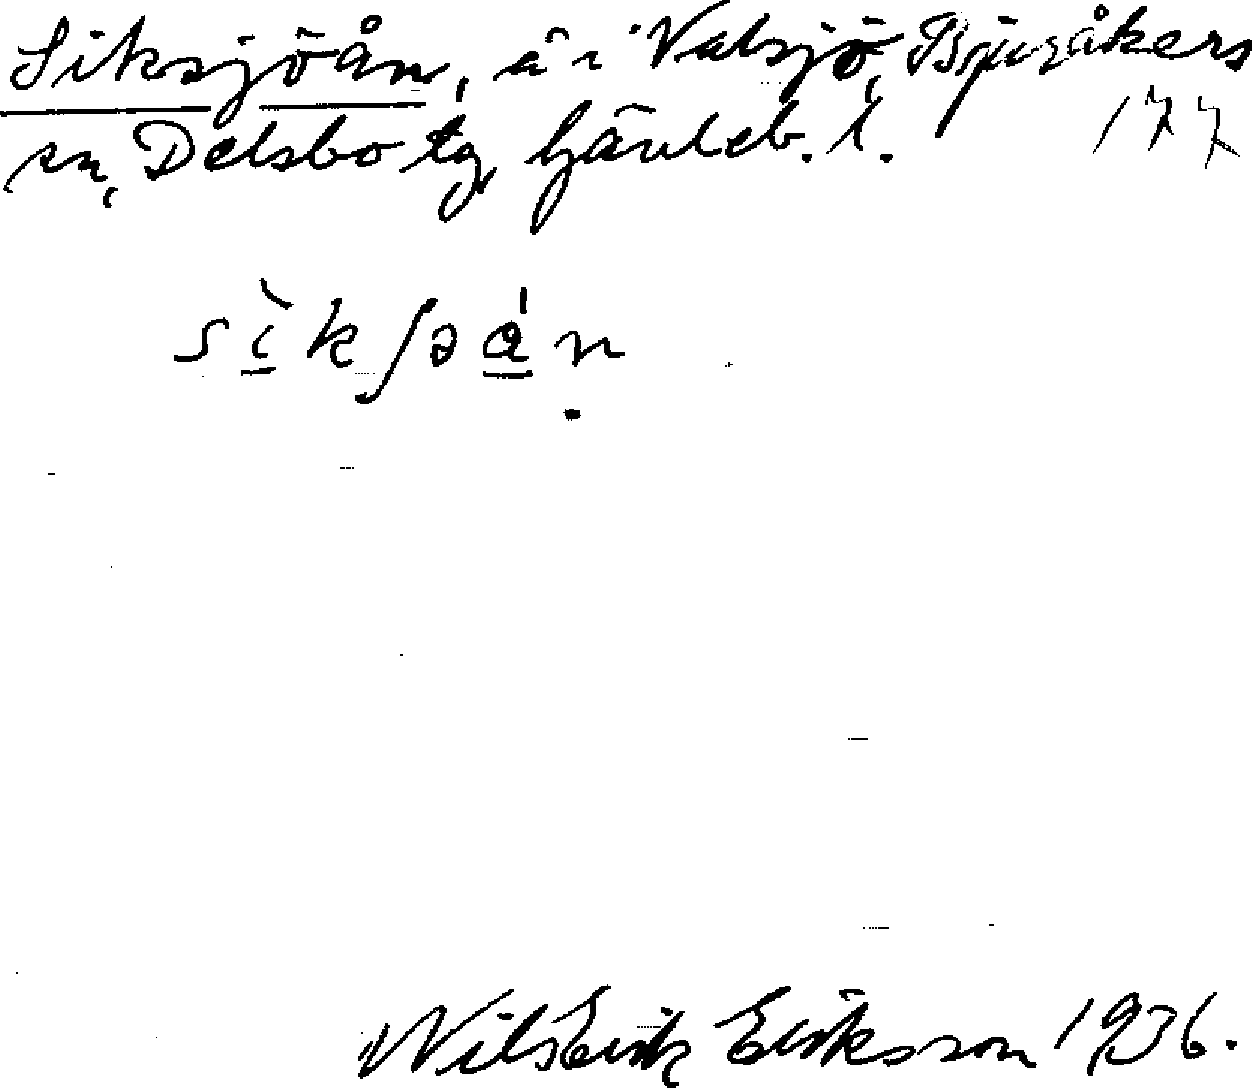 Siksjöån, å i Valsjö, Bjuråkers
sn, Delsbo tg, Gävleb. l.
177
sìkʃəån
Nils Erik Eriksson 1936.